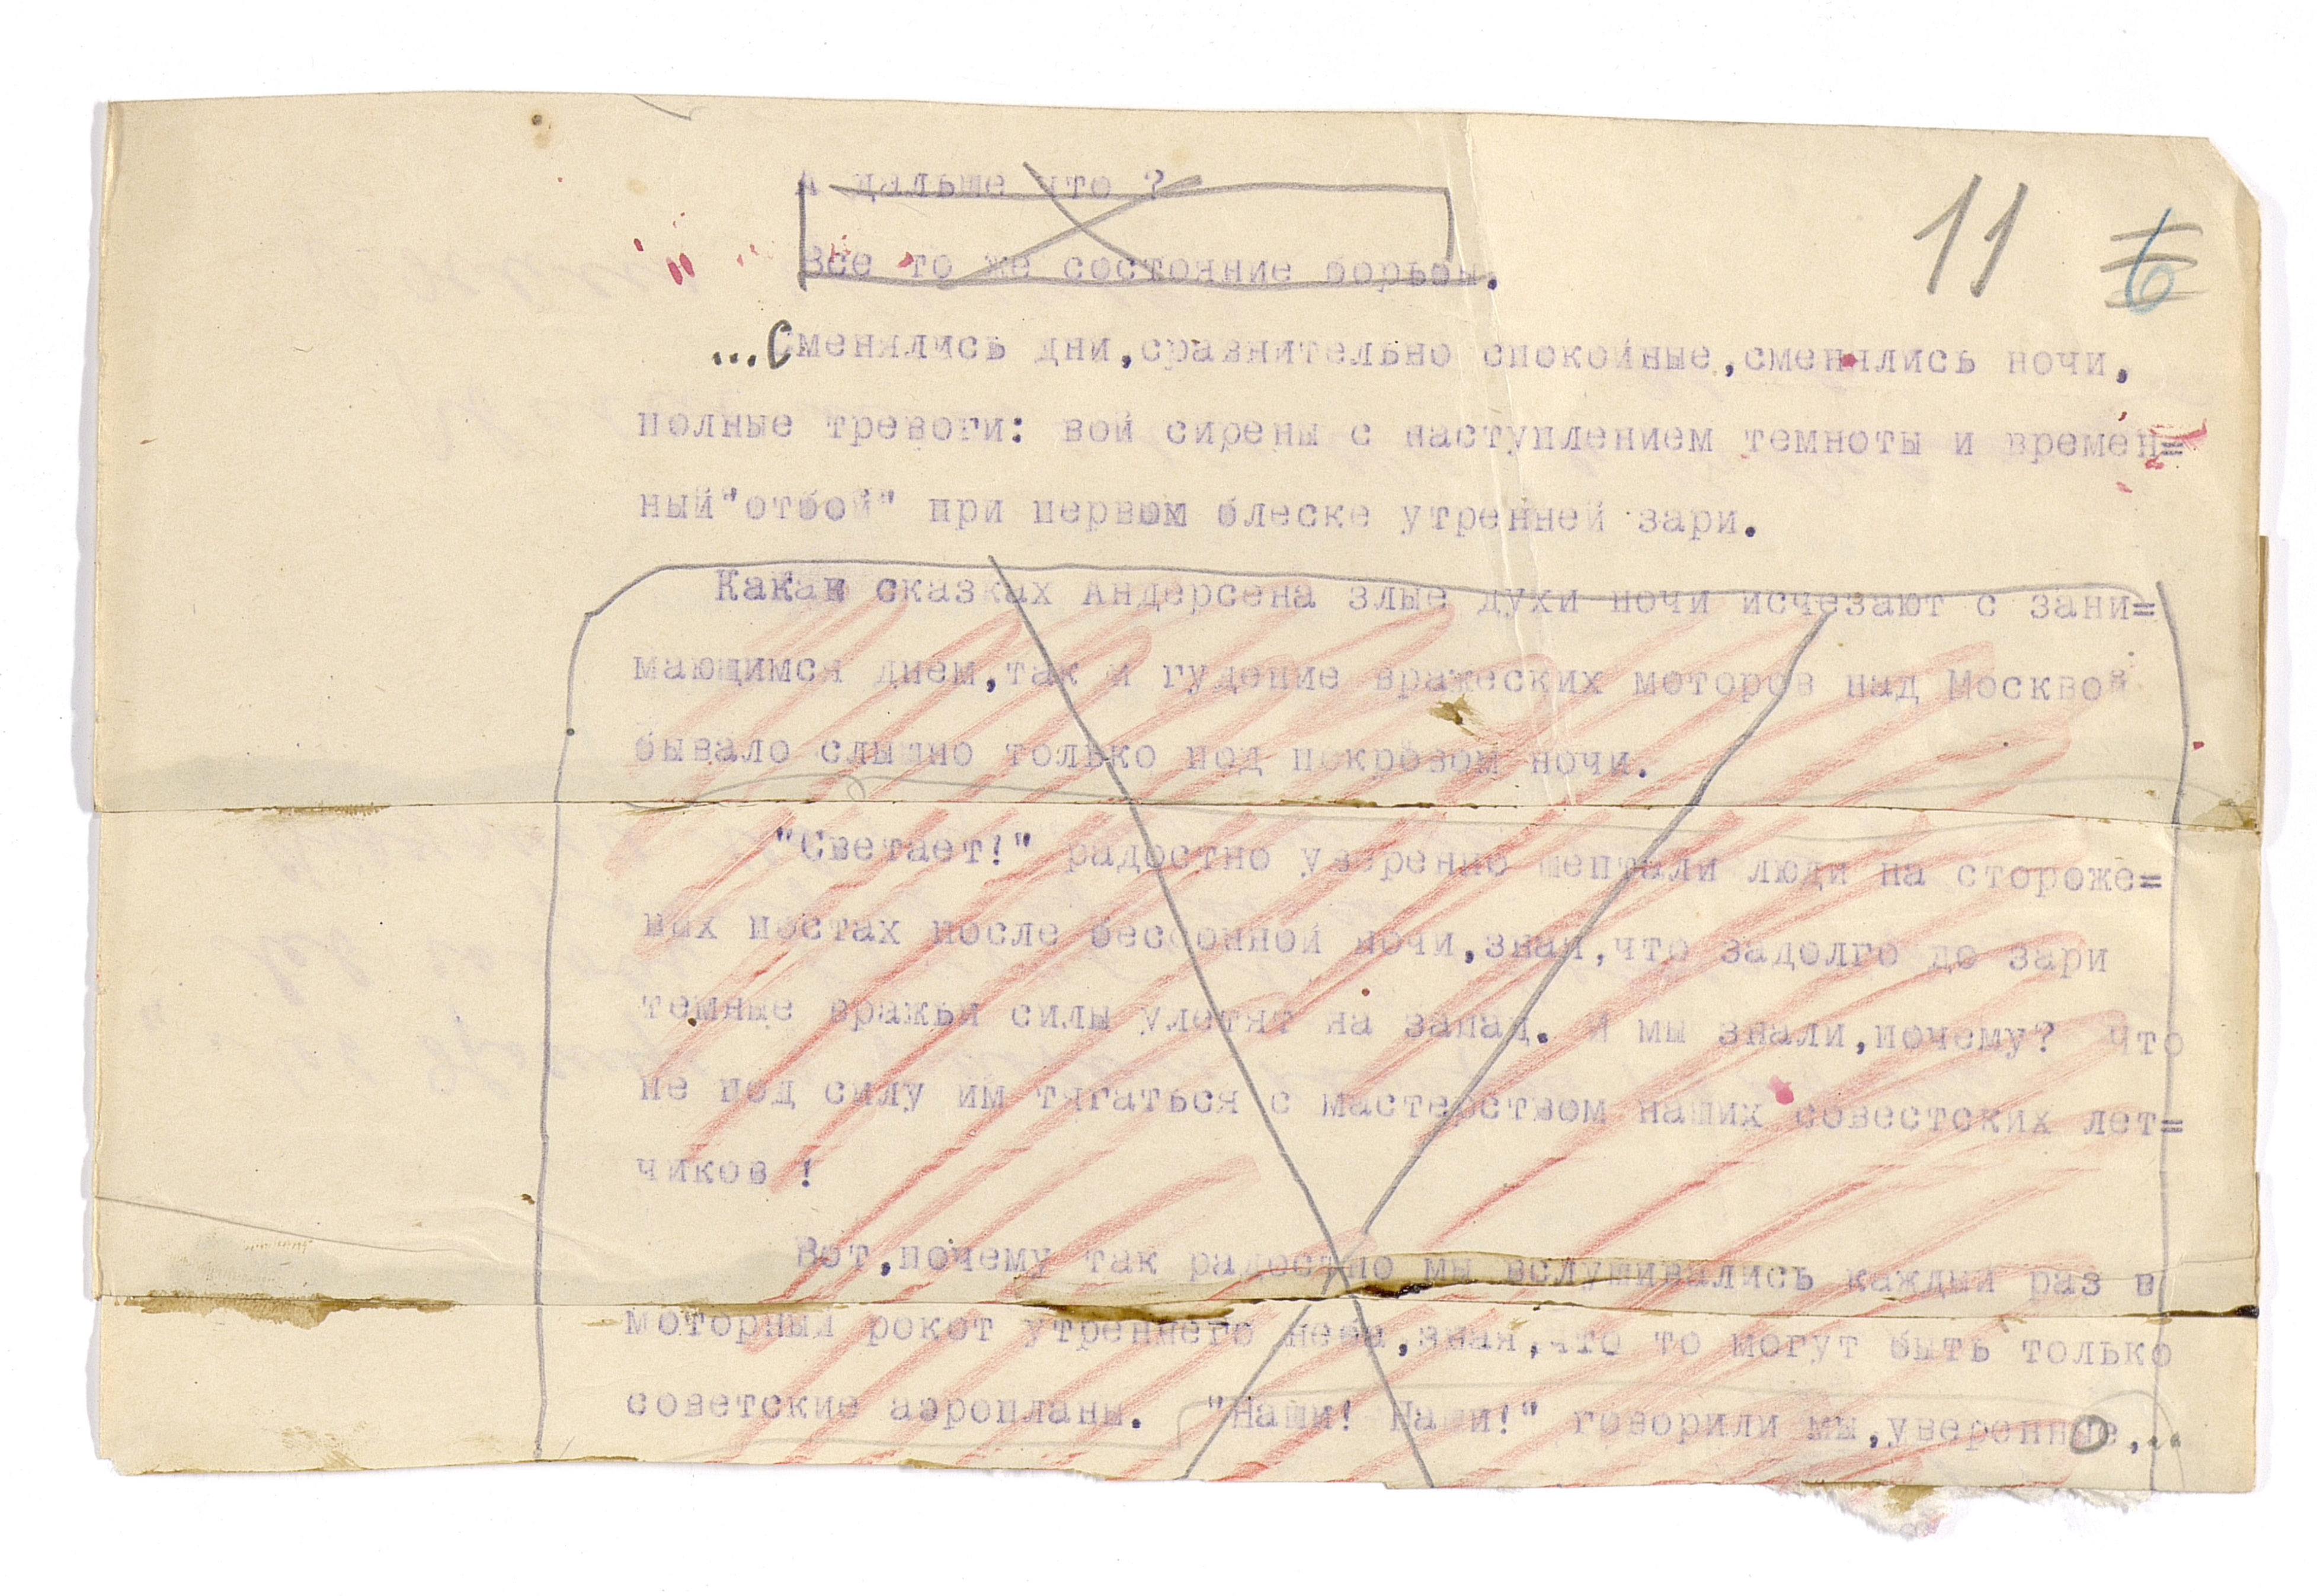 11 6
А дальше что ?
Все то же состояние борьбы.
...Сменялись дни,сравнительно спокойные,сменялись ночи,
полные тревоги: вой сирены с наступлением темноты и времен=
ный"отбой" при первом блеске утренней зари.
Как в сказках Андерсена злые духи ночи исчезают с зани=
мающимся днем,так и гудение вражеских моторов над Москвой
бывало слышно только под покровом ночи.
"Светает!" радостно уверенно шептали люди на стороже=
вых постах после бессонной ночи,зная,что задолго до зари
темные вражьи силы улетят на запад. И мы знали,почему? Что
не под силу им тягаться с мастерством наших совестских лет=
чиков !
Вот,почему так радостно мы вслушивались каждый раз в
моторный рокот утреннего неба,зная,что то могут быть только
советские аэропланы. "Наши! Наши!" говорили мы,уверенно,...